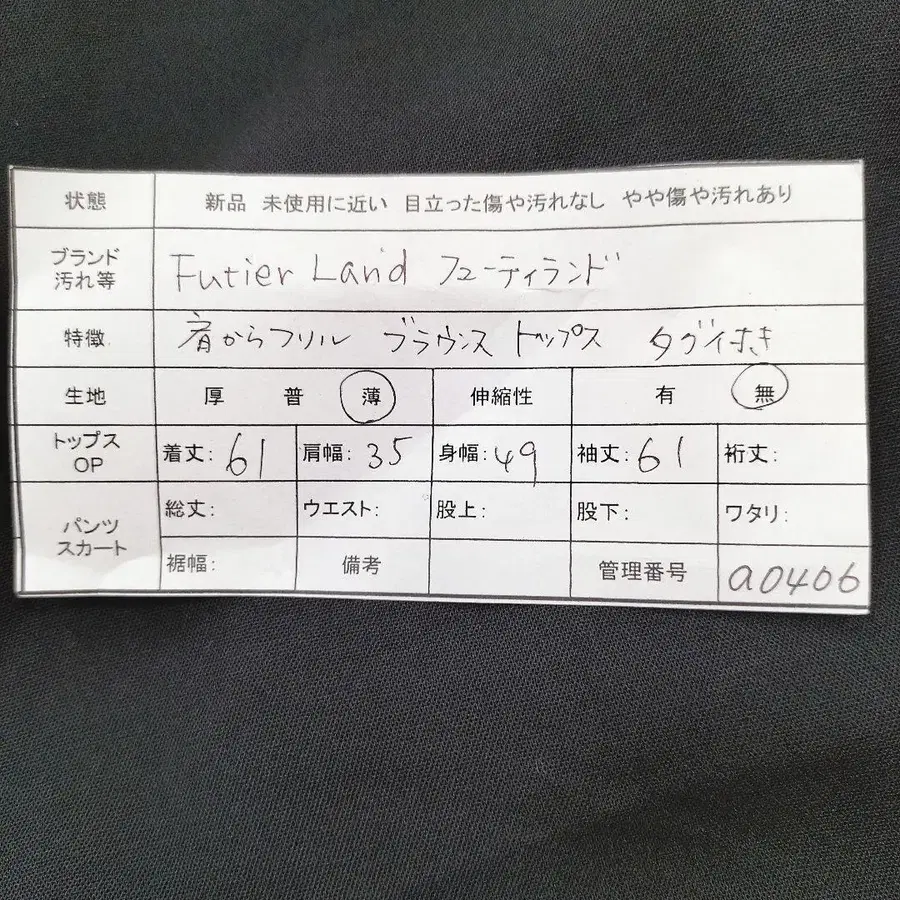 状態 新品 未使用に近い 目立った傷や汚れなし やや傷や汚れあり
ブランド 汚れ等 Futier Land フューティランド
特徴 肩からフリル ブラウンス トップス タグ付き
生地 厚 普 薄 伸縮性 有 無
トップス OP 着丈: 61 肩幅: 35 身幅: 49 袖丈: 61 裄丈:
パンツ スカート 総丈: ウエスト: 股上: 股下: ワタリ:
裾幅: 備考 管理番号 a0406